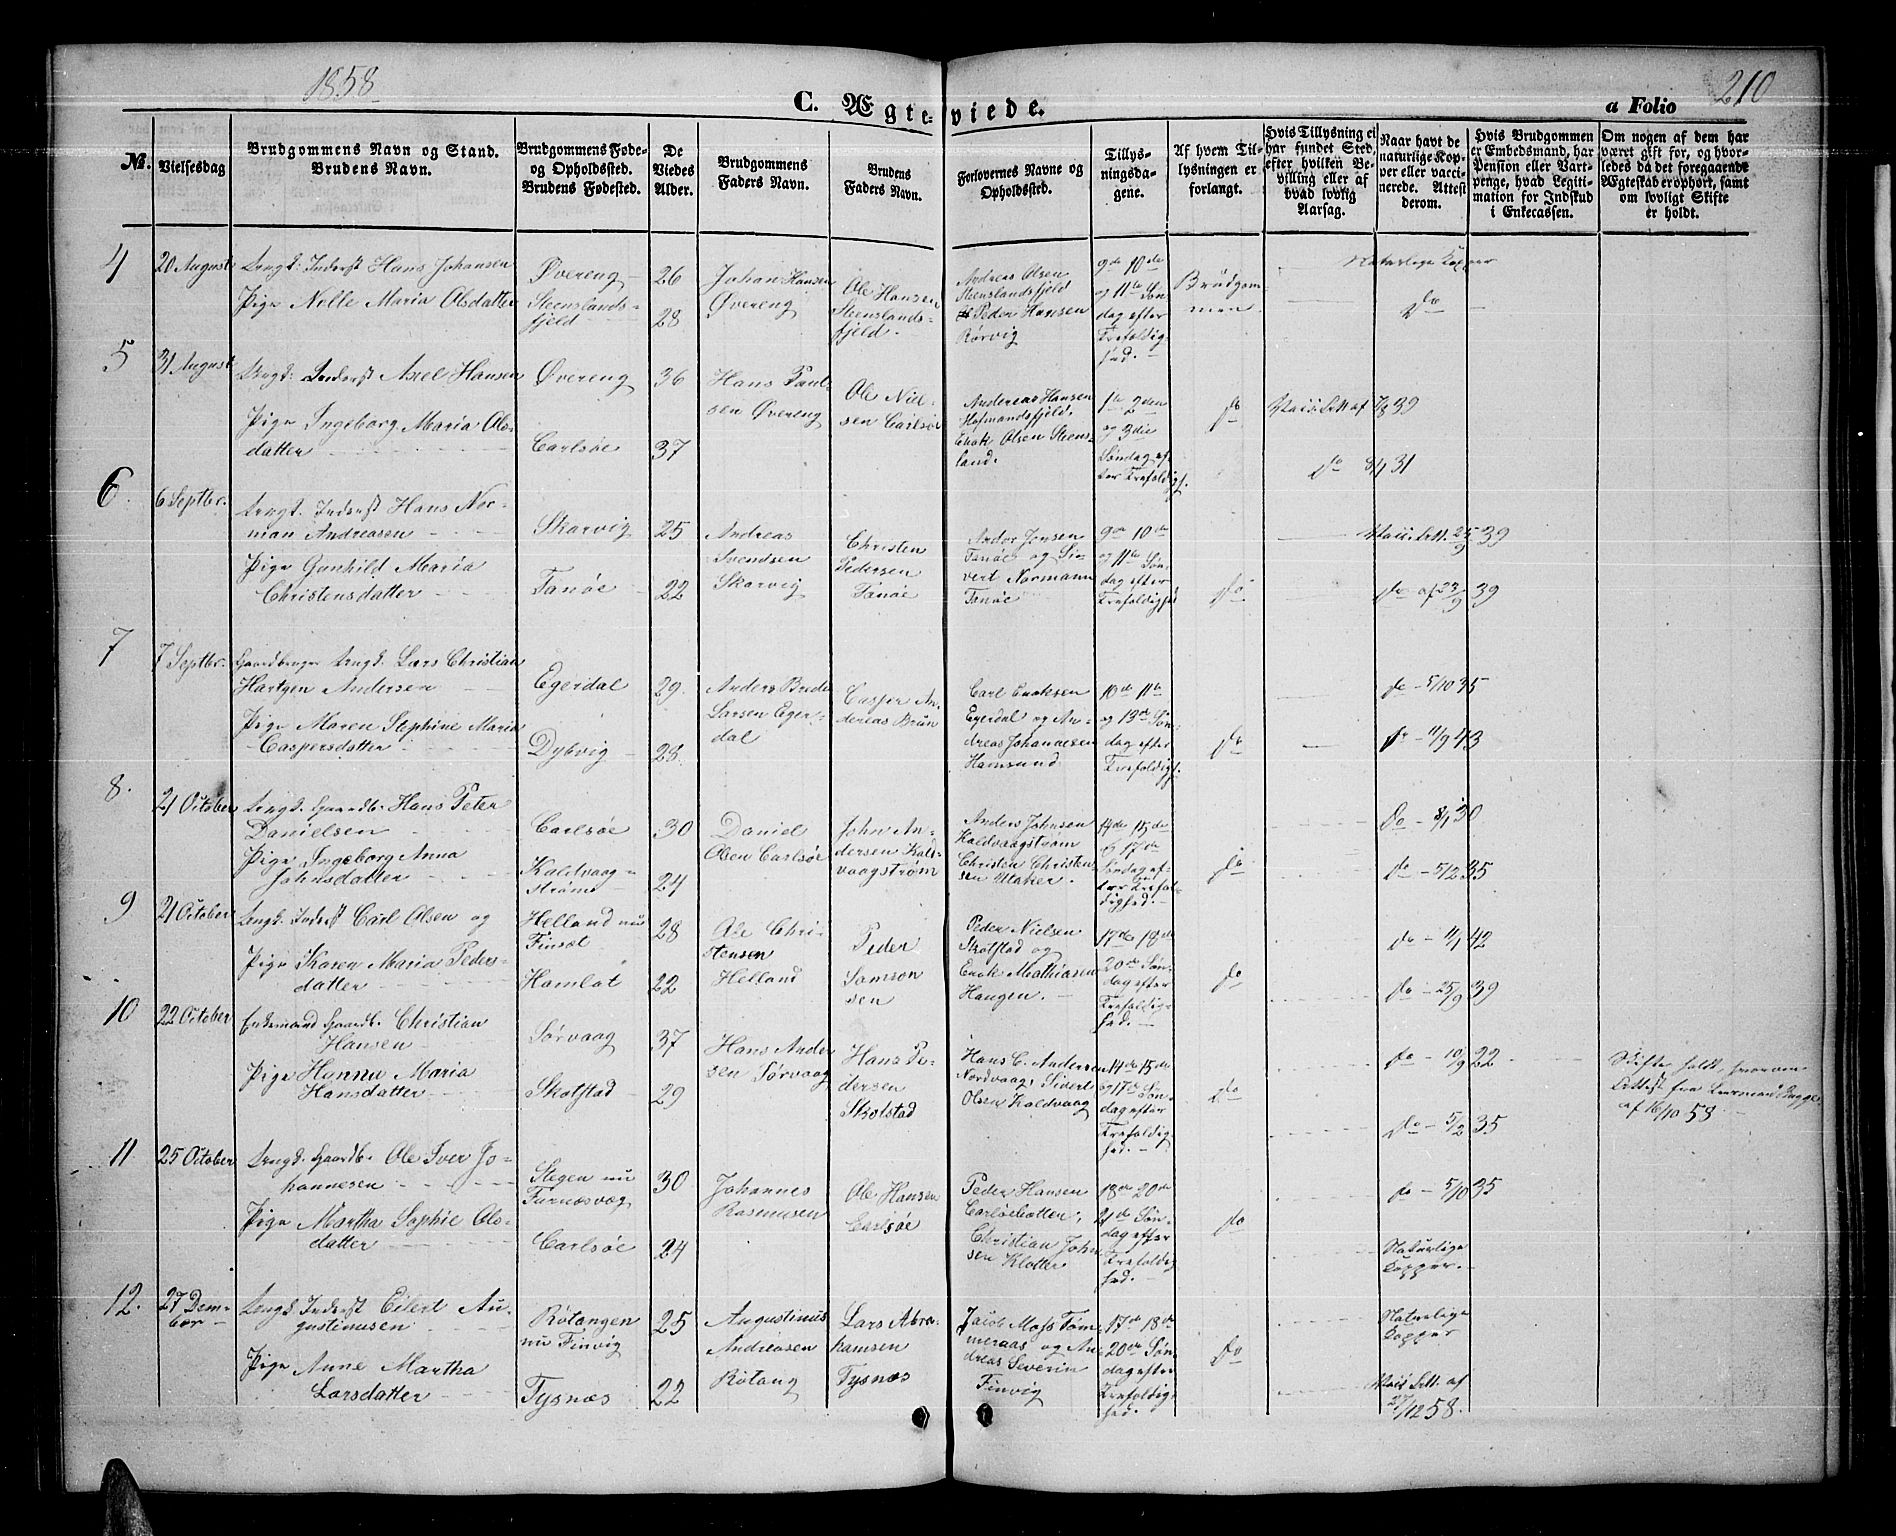 1858
210
C. Ægteviede.
a Folio
No.
Vielsesdag
Brudgommens Navn og Stand.
Brudens Navn.
Brudgommens Føde-
og Opholdssted.
Brudens Fødested.
De
Viedes
Alder.
Brudgommens
Faders Navn.
Brudens
Faders Navn.
Forlovernes Navne og
Opholdssted.
Tillys-
ningsda-
gene.
Af hvem Til-
lysningen er
forlangt.
Hvis Tillysning ei
har fundet Sted,
efter hvilken Be-
villing eller af
hvad lovlig
Aarsag.
Naar havt de
naturlige Kop-
per eller vacci-
nerede. Attest
derom.
Hvis Brudgommen
er Embedsmand, har
Pension eller Vart-
penge, hvad Legiti-
mation for Indskud
i Enkecassen.
Om nogen af dem har
været gift før, og hvor-
ledes da det foregaaende
Ægteskab er ophørt, samt
om lovligt Skifte
er holdt.
4
20 August
Ungk. Inderst Hans Johansen
Pige Nille Maria Olsdatter
Øvereng
Steenslands-
fjeld
26
28
Johan Hansen
Øvereng
Ole Hansen
Steenslands-
fjeld.
Andreas Olsen
Steenslandsfjeld
Peder Hansen
Rørvig
9de 10de
og 11te Søn-
dag efter
Trefoldig-
hed.
Brudgom
men
Naturlige Kopper
Do
5
31 August
Ungk: Inderst Axel Hansen
Pige Ingeborg Maria Ols-
datter
Øvereng
Carlsøe
36
37
Hans Paul-
sen Øvereng
Ole Niel-
sen Carlsøe
Andreas Hansen
Hofmandsfjeld.
Enok Olsen Steens-
land.
1te 2den
og 3die
Søndag ef-
ter Trefoldigh.
Do
Vacs. Att. af 7/8 39
Do 8/1 31
6
6 Septbr.
Ungk. Inderst Hans Nor-
man Andreasen
Pige Gunhild Maria
Christensdatter
Skarvig
Tanøe
25
22
Andreas
Svendsen
Skarvig
Christen
Pedersen
Tanøe
Andor Jensen
Tanøe og Si-
vert Normann
Tanøe
9de 10de
og 11te Søn-
dag efter
Trefoldighed
Do
Vacs. Att. 25/9 39
Do af 23/9 39
7
7 Septbr.
Gaardbruger Ungk. Lars Christian
Hartgen Andersen
Pige Maren Stephine Maria
Caspersdatter
Egerdal
Dybvig
29.
28.
Anders Brede
Larsen Eger-
dal
Casper An-
dereas Brun
Carl Enoksen
Egerdal og An-
dreas Johannesen
Hamsund
10de 11te
og 13de Søn-
dag efter
Trefoldigh.
Do
Do - 5/10 35
Do - 11/9 43
8.
21 October
Ungk. Gaardb. Hans Peter
Danielsen
Pige Ingeborg Anna
Johnsdatter
Carlsøe
Kaldvaag-
strøm
30
24
Daniel
Olsen Carlsøe
John An-
dersen Kald-
vaagstrøm
Anders Johnsen
Kaldvaagstrøm
Christen Christen-
sen Utaker.
14de 15de
& 17de
Søndag ef-
ter Trefol-
dighed.
Do
Do - 8/1 30
Do - 5/2 35
9
21 October
Ungk. Inderst Carl Olsen og
Pige Karen Maria Peders-
datter
Helland nu
Finsæt
Hamlot
28
22
Ole Chri-
stensen
Helland
Peder
Samson
sen
Peder Nielsen
Skotstad og
Enok Mathiasen
Haugen.
17de 18de
20de Søn-
dag efter
Trefoldig-
hed.
Do
Do - 11/1 42
Do - 25/9 39
10
22 October
Enkemand Gaardb. Christian
Hansen
Pige Hanna Maria
Hansdatter
Sørvaag
Skotstad
37
29
Hans Ander
sen Sørvaag
Hans Pe-
dersen
Skotstad
Hans C. Andersen
Nordvaag, Sivert
Olsen Kaldvaag
14de 15de
og 17de Søn-
dag efter
Trefoldig-
hed.
Do
Do - 10/9 22
Do - 5/2 35
Skifte holdt, hvorom
Attest fra Lensmand Bugge
af 16/10 58
11
25 October
Ungk. Gaardb. Ole Iver Jo-
hannesen
Pige Martha Sophie Ols-
datter
Stegen nu
Furnæsvæg
Carlsøe
30
24
Johannes
Rasmusen
Ole Hansen
Carlsøe
Peder Hansen
Carlsøebotten,
Christian John
sen Klotter
18de 20de
21de Søn-
dag efter
Trefoldig
hed.
Do
Do - 5/10 35
Naturlige
Kopper.
12.
27 Dem-
ber
Ungk. Inderst Eilert Au-
gustinusen
Pige Anne Martha
Larsdatter
Røtangen
nu Finvig
Tysnæs
25
22
Augustinus
Andreasen
Røtang
Lars Abra-
hamsen
Tysnæs
Jacob Moss Tøm-
meraas og An-
dreas Severin
Finvig
17de 18de
20de Søn-
dag efter
Trefoldig-
hed.
Do
Naturlige
Kopper
Vacs. Att. af
27/12 58.